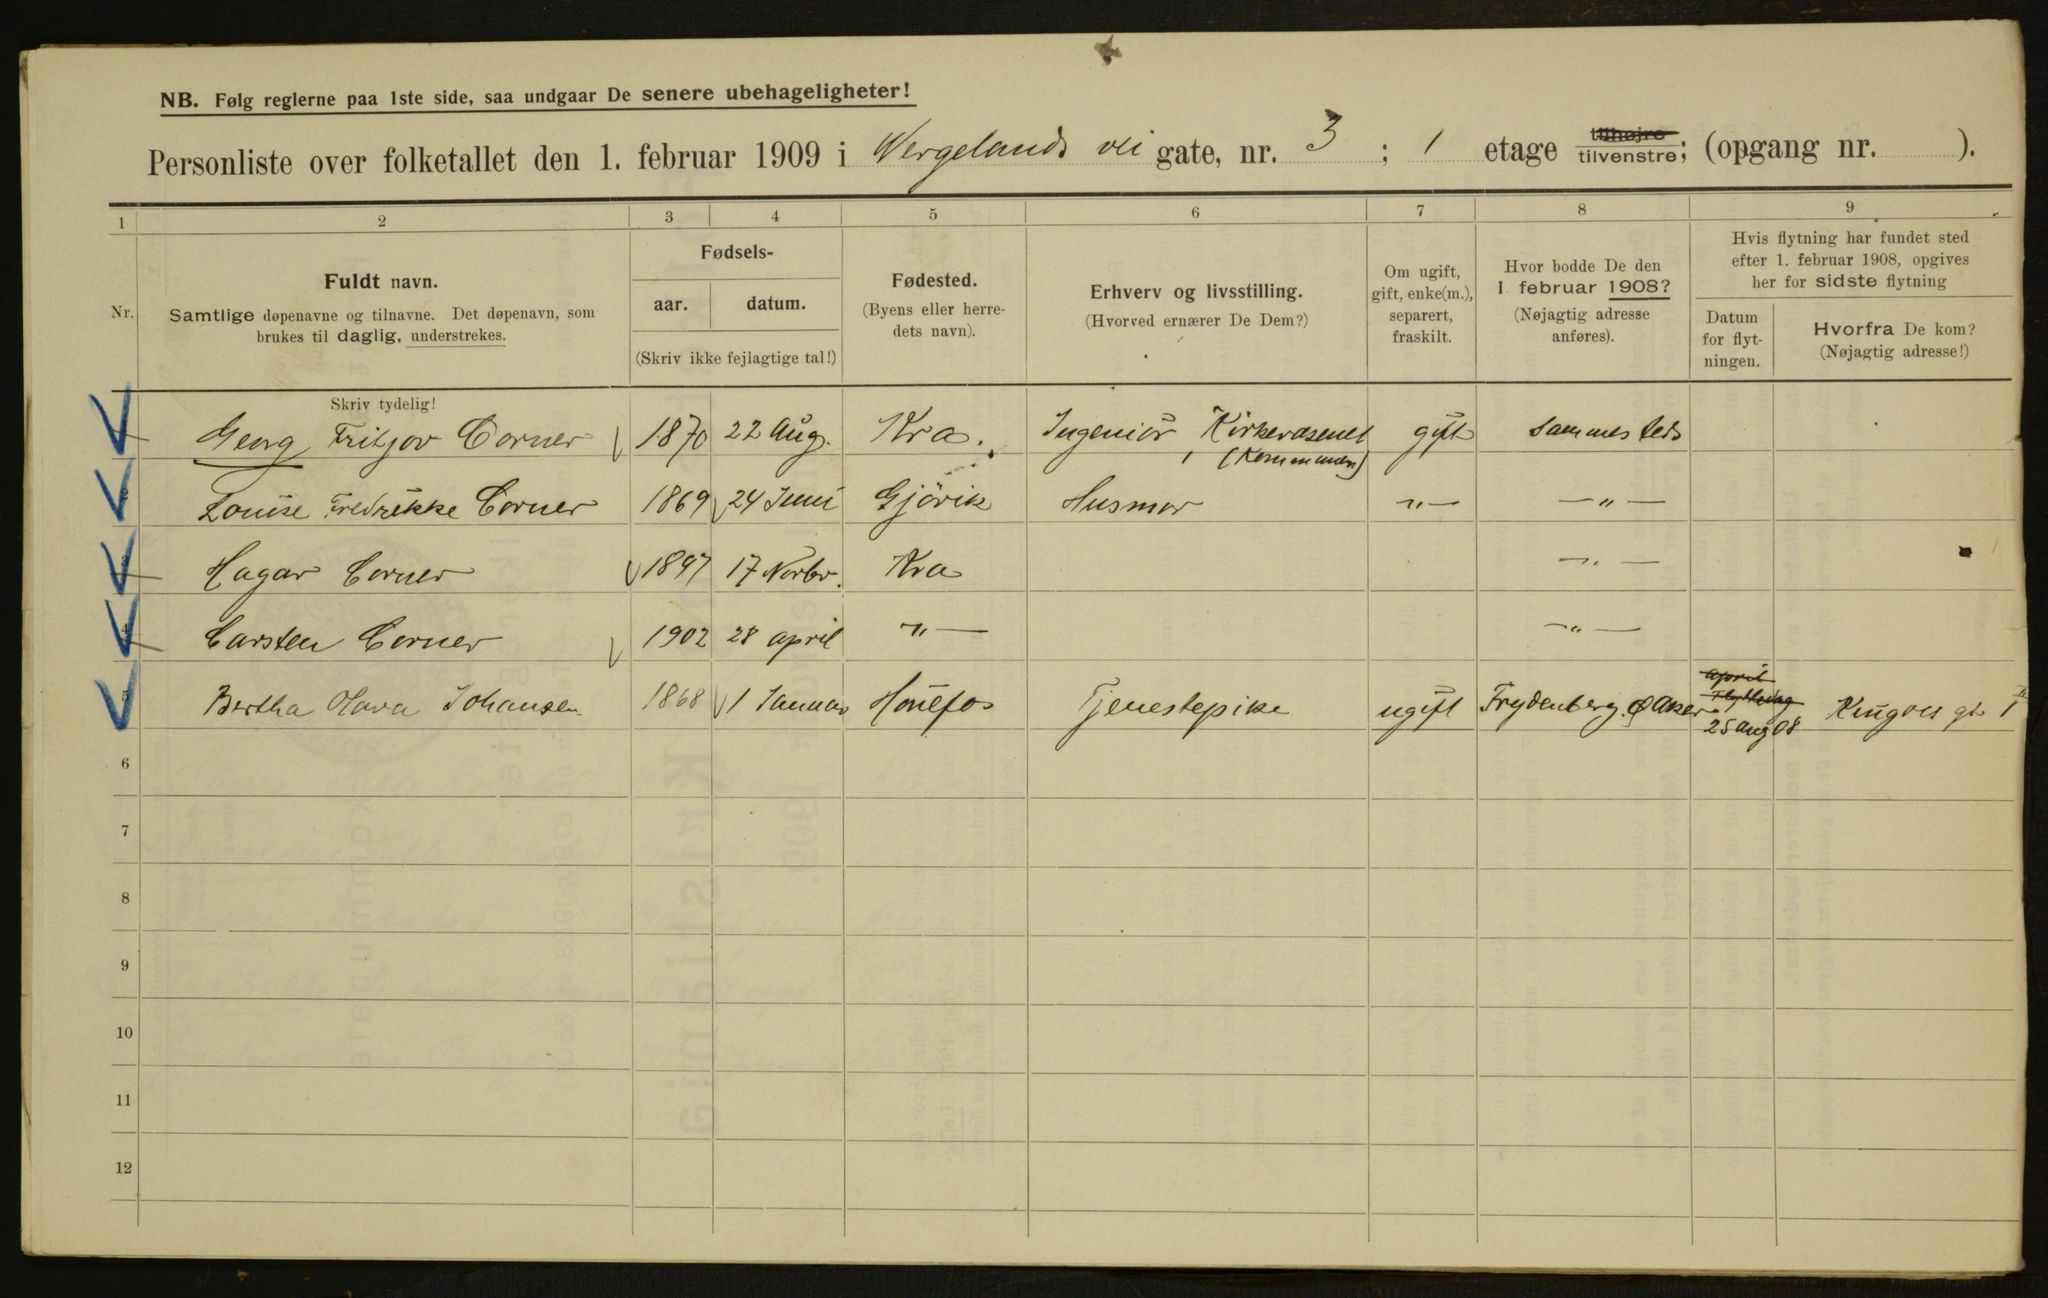 NB. Følg reglerne paa 1ste side, saa undgaar De senere ubehageligheter!
Personliste over folketallet den 1. februar 1909 i Wergelands vei gate, nr. 3 ; 1 etage tilhøjre tilvenstre; (opgang nr. ).
1 2 3 4 5 6 7 8 9
Nr.
Fuldt navn.
Samtlige døpenavne og tilnavne. Det døpenavn, som
brukes til daglig, understrekes.
Fødsels-
aar. datum.
(Skriv ikke fejlagtige tal!)
Fødested.
(Byens eller herre-
dets navn).
Erhverv og livsstilling.
(Hvorved ernærer De Dem?)
Om ugift,
gift, enke(m.),
separert,
fraskilt.
Hvor bodde De den
1 februar 1908?
(Nøjagtig adresse
anføres).
Hvis flytning har fundet sted
efter 1. februar 1908, opgives
her for sidste flytning
Datum
for flyt-
ningen.
Hvorfra De kom?
(Nøjagtig adresse!)
Skriv tydelig!
Georg Fritjov Corner 1870 22 Aug. Kra. Ingeniör, Kirkevæsenet gift sammesteds
(Kommunen)
Louise Fredrikke Corner 1869 24 Juni Gjövik Husmor —"— —"—
Hagar Corner 1897 17 Novbr. Kra —"—
Carsten Corner 1902 28 april —"— —"—
april
Flyttedag
5 Bertha Olava Johansen 1868 1 Januar Hönefos Tjenestepike ugift Frydenberg. Ø Aker 25 Aug 08 Kingos gt 1
6
7
8
9
10
11
12